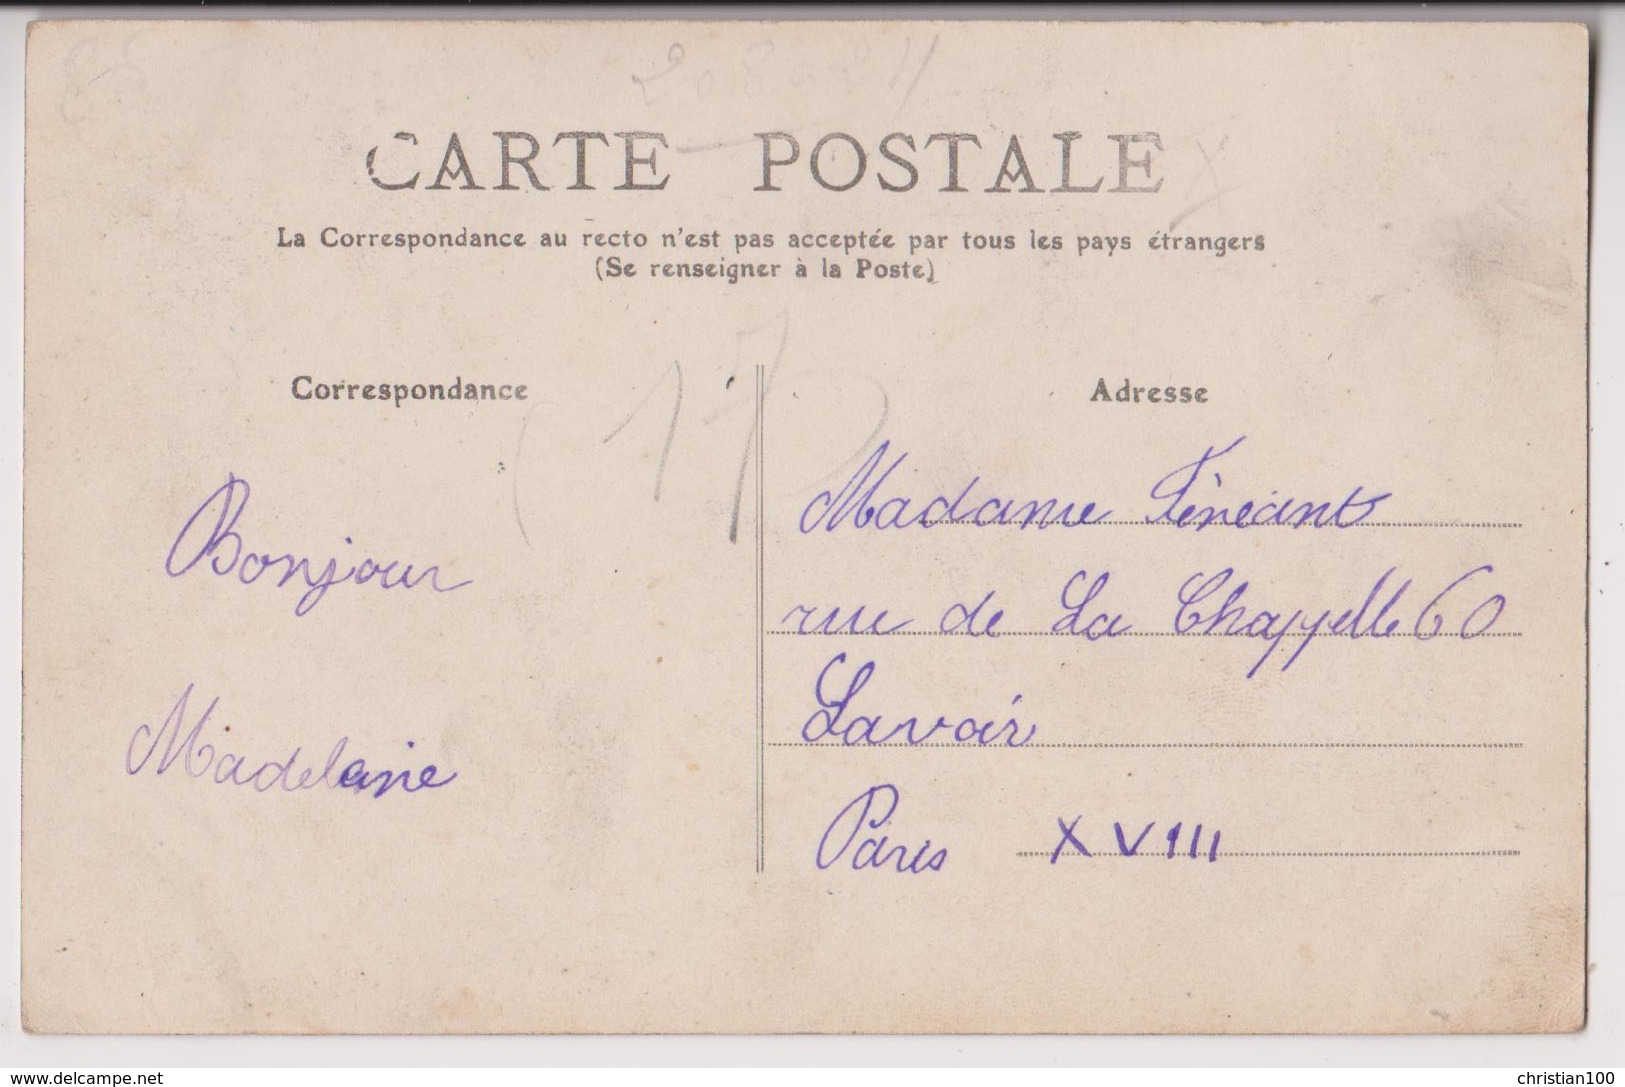 CARTE POSTALE
La Correspondance au recto n'est pas acceptée par tous les pays étrangers
(Se renseigner à la Poste)
Correspondance
Bonjour
Madelaine
17
Adresse
Madame
rue de La Chappelle 60
Lavoir
Paris XVIII
www.delcampe.net
christian100